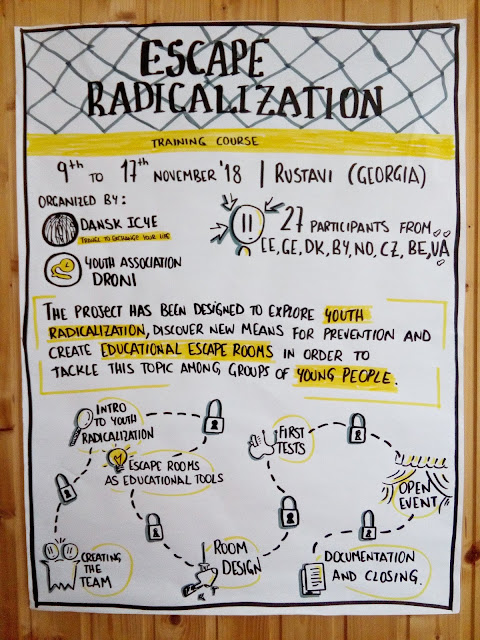 ESCAPE
RADICALIZATION
TRAINING COURSE
9th TO 17th NOVEMBER '18 | RUSTAVI (GEORGIA)
ORGANIZED BY:
DANSK ICYE
TRAVEL TO EXCHANGE YOUR LIFE
YOUTH ASSOCIATION
DRONI
27 PARTICIPANTS FROM
EE, GE, DK, BY, NO, CZ, BE, UA
THE PROJECT HAS BEEN DESIGNED TO EXPLORE YOUTH
RADICALIZATION, DISCOVER NEW MEANS FOR PREVENTION AND
CREATE EDUCATIONAL ESCAPE ROOMS IN ORDER TO
TACKLE THIS TOPIC AMONG GROUPS OF YOUNG PEOPLE.
INTRO
TO YOUTH
RADICALIZATION
ESCAPE ROOMS
AS EDUCATIONAL TOOLS
FIRST
TESTS
OPEN
EVENT
CREATING
THE
TEAM
ROOM
DESIGN
DOCUMENTATION
AND CLOSING.